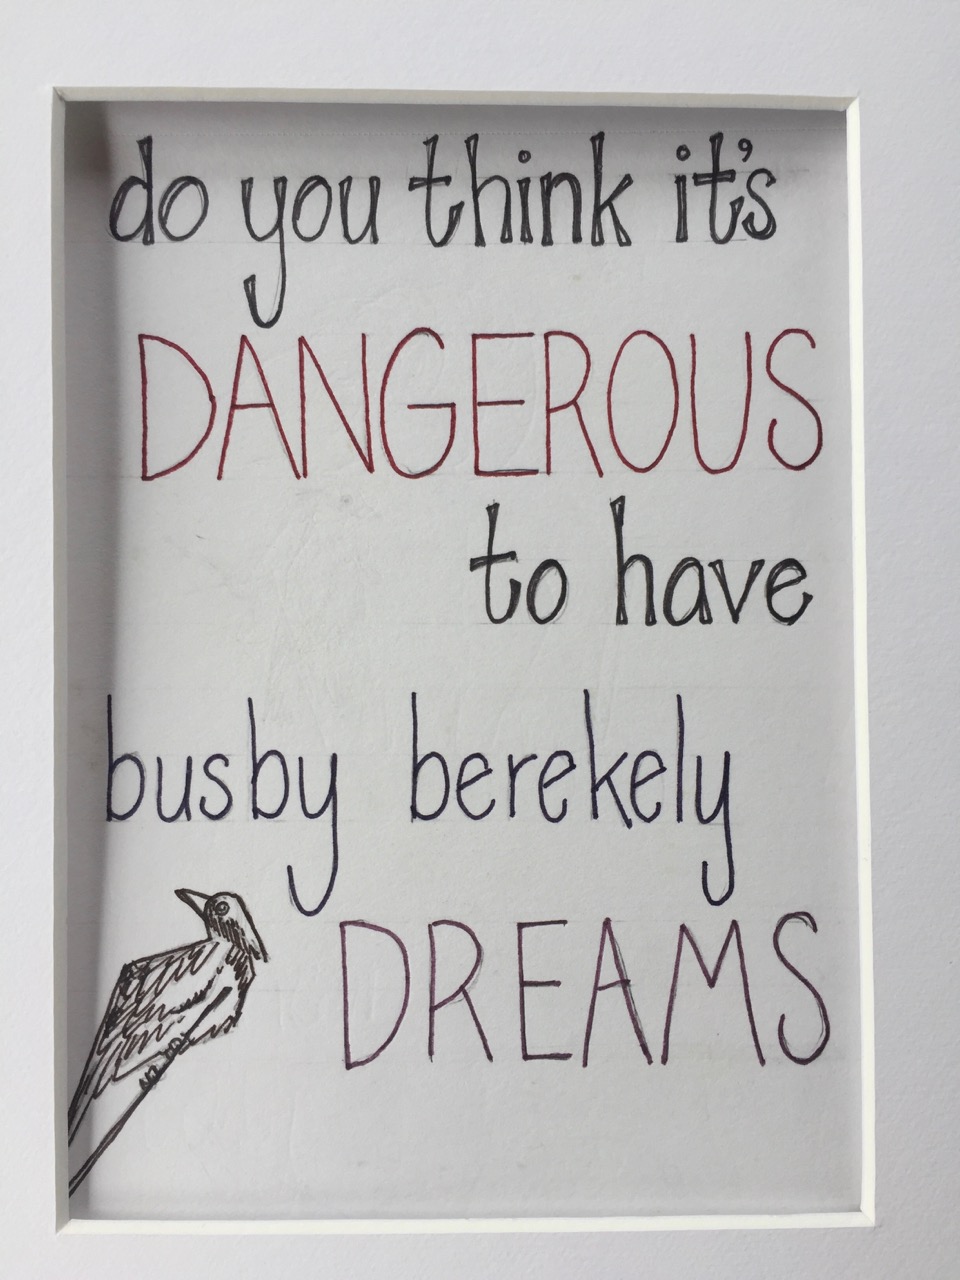 do you think it's
DANGEROUS
to have
busby berekely
DREAMS